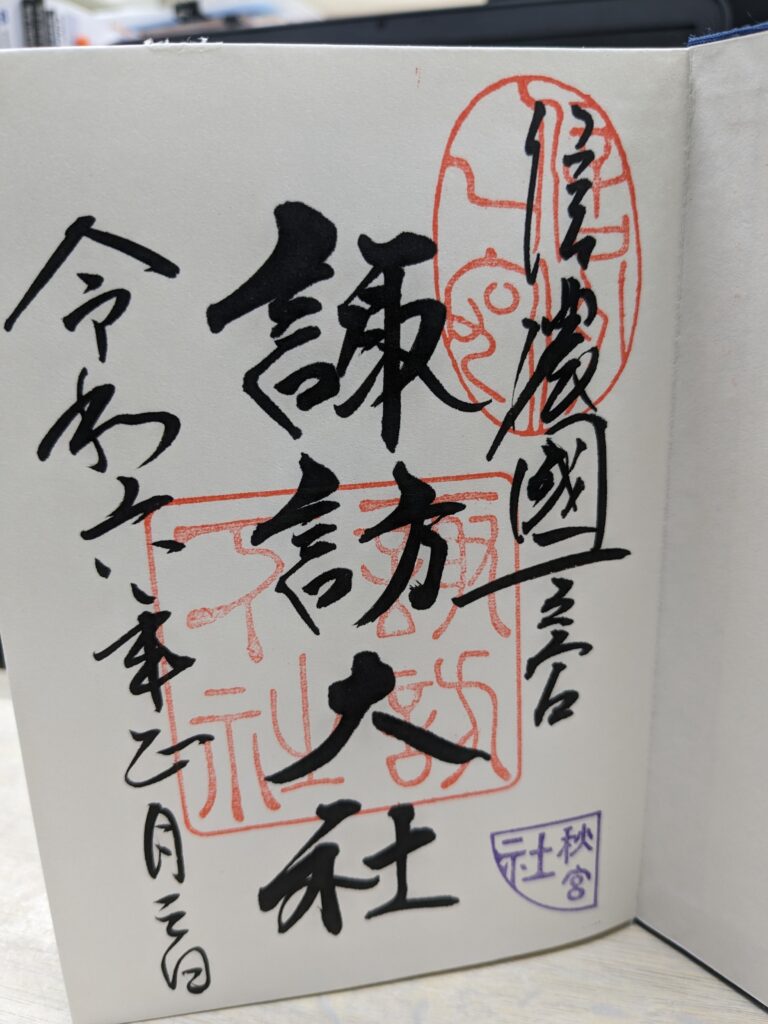 信濃國一之宮
諏訪大社
令和六年正月三日
諏訪
下社
秋宮
社